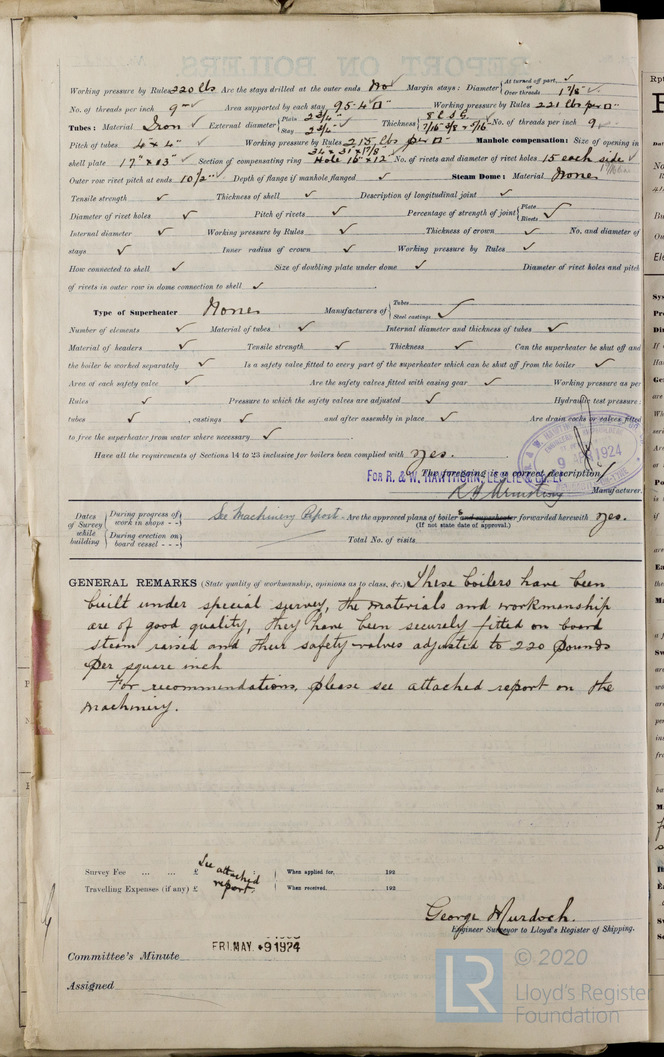 Working pressure by Rules 220 lbs Are the stays drilled at the outer ends No Margin stays: Diameter { At turned off part, or Over threads 1 7/8"
No. of threads per inch 9 Area supported by each stay 95.4 □" Working pressure by Rules 221 lbs per □"
Tubes: Material Iron External diameter { Plain 2 3/4" Stay 2 3/4" Thickness { 8 L.S.G. 7/16 3/8 & 5/16 No. of threads per inch 9
Pitch of tubes 4" x 4" Working pressure by Rules 215 lbs per □" Manhole compensation: Size of opening in
shell plate 17" x 13" Section of compensating ring 34 x 31 x 1 7/8" Hole 16" x 12" No. of rivets and diameter of rivet holes 15 each side
Outer row rivet pitch at ends 10 1/2" Depth of flange if manhole flanged ✓ Steam Dome: Material None
Tensile strength ✓ Thickness of shell ✓ Description of longitudinal joint ✓
Diameter of rivet holes ✓ Pitch of rivets ✓ Percentage of strength of joint { Plate Rivets ✓
Internal diameter ✓ Working pressure by Rules ✓ Thickness of crown ✓ No. and diameter of
stays ✓ Inner radius of crown ✓ Working pressure by Rules ✓
How connected to shell ✓ Size of doubling plate under dome ✓ Diameter of rivet holes and pitch
of rivets in outer row in dome connection to shell ✓
Type of Superheater None Manufacturers of { Tubes Steel castings ✓
Number of elements ✓ Material of tubes ✓ Internal diameter and thickness of tubes ✓
Material of headers ✓ Tensile strength ✓ Thickness ✓ Can the superheater be shut off and
the boiler be worked separately ✓ Is a safety valve fitted to every part of the superheater which can be shut off from the boiler ✓
Area of each safety valve ✓ Are the safety valves fitted with easing gear ✓ Working pressure as per
Rules ✓ Pressure to which the safety valves are adjusted ✓ Hydraulic test pressure:
tubes ✓ , castings ✓ and after assembly in place ✓ Are drain cocks or valves fitted
to free the superheater from water where necessary ✓
Have all the requirements of Sections 14 to 23 inclusive for boilers been complied with Yes.
9 APR 1924
The foregoing is a correct description,
FOR R. & W. HAWTHORN, LESLIE & Co. LD
R. Armstrong Manufacturer.
Dates of Survey while building { During progress of work in shops - - } See Machinery Report. Are the approved plans of boilers and superheater forwarded herewith Yes.
(If not state date of approval.)
{ During erection on board vessel - - - } Total No. of visits
GENERAL REMARKS (State quality of workmanship, opinions as to class, &c.) These boilers have been
built under special survey, the materials and workmanship
are of good quality, they have been securely fitted on board
steam raised and their safety valves adjusted to 220 pounds
per square inch
For recommendations, please see attached report on the
Machinery.
Survey Fee ... ... £ See attached report. When applied for, 192
Travelling Expenses (if any) £ When received, 192
George Murdoch.
Engineer Surveyor to Lloyd's Register of Shipping.
Committee's Minute FRI. MAY 9 1924
Assigned
LR © 2020
Lloyd's Register
Foundation